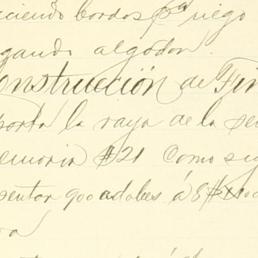 ciendo bordos pa riego
gando algodon.
onstrucción de Fin
porta la raya de la se
emoria #21 como si
sentar 900 adobes á 8
ra